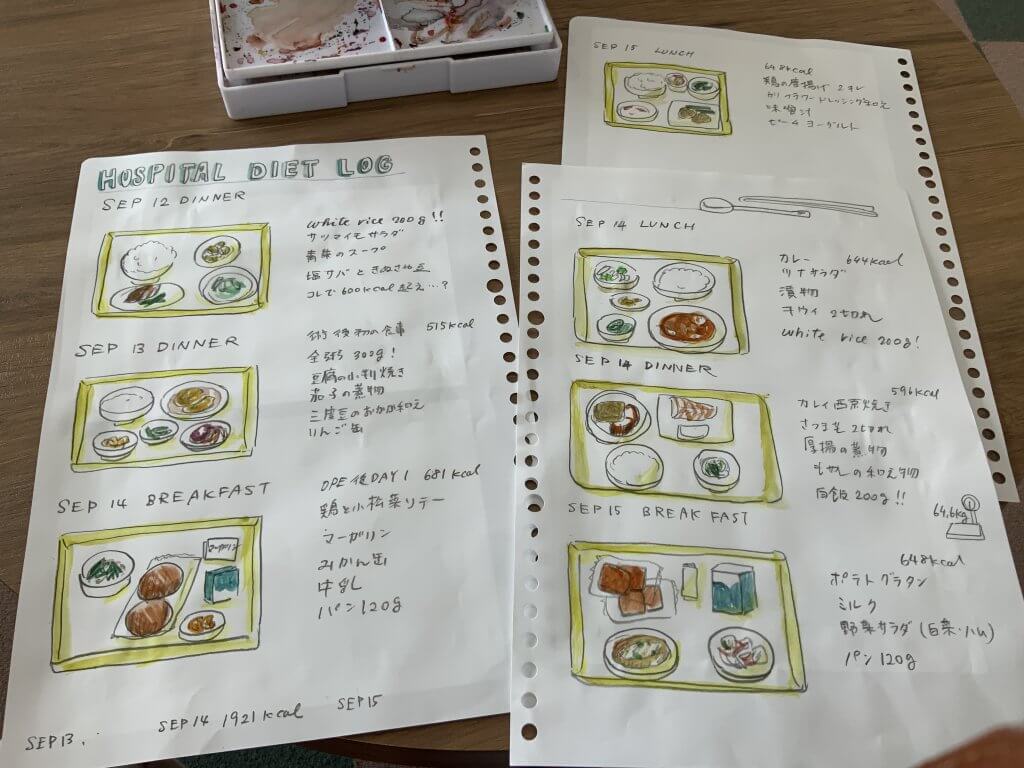 HOSPITAL DIET LOG
SEP 12 DINNER
white rice 200g!!
サツマイモサラダ
青菜のスープ
塩サバときぬさや豆
コレで600kcal超え…?
SEP 13 DINNER
術後初の食事 515kcal
全粥 300g!
豆腐の小判焼き
茄子の煮物
三度豆のおかか和え
りんご缶
SEP 14 BREAKFAST
OPE後DAY1 681kcal
鶏と小松菜ソテー
マーガリン
みかん缶
牛乳
パン120g
マーガリン
SEP13.
SEP14 1921kcal
SEP15
SEP 15 LUNCH
648kcal
鶏の唐揚げ 2コ
カリフラワードレッシング和え
味噌汁
ピーチヨーグルト
SEP 14 LUNCH
カレー 644kcal
ツナサラダ
漬物
キウイ 2切れ
white rice 200g!
SEP 14 DINNER
596kcal
カレイ西京焼き
さつま芋2切れ
厚揚の煮物
もやしの和え物
白飯200g!!
64.6kg
SEP 15 BREAKFAST
648kcal
ポテトグラタン
ミルク
野菜サラダ(白菜・ハム)
パン120g